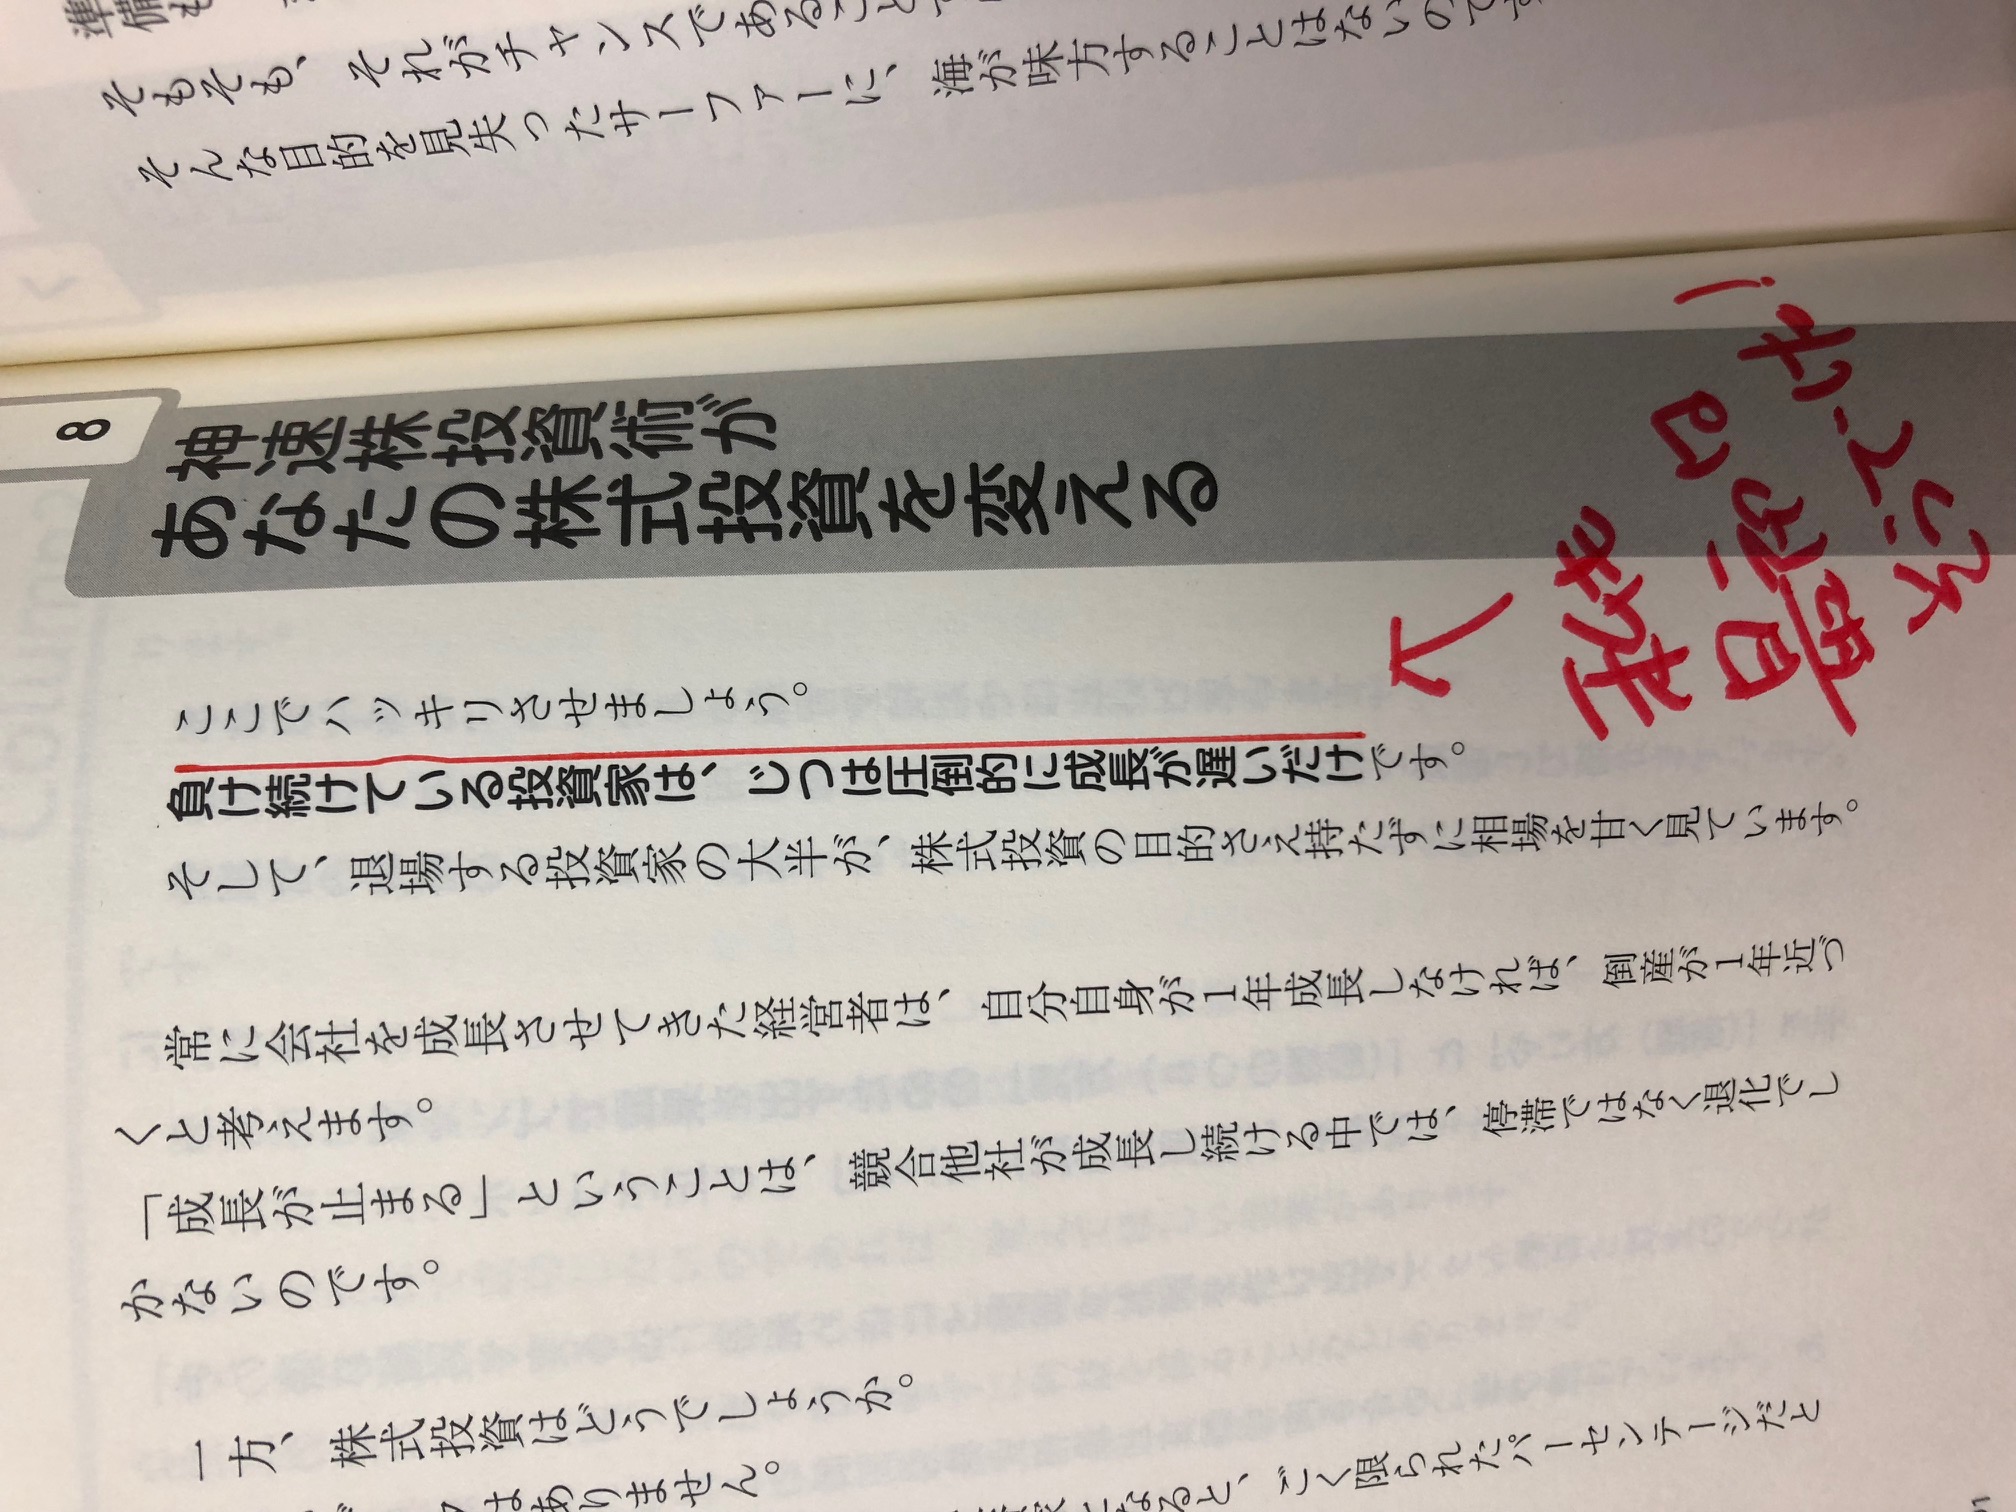 準備も
そもそも、それがチャンスであること
そんな目的を見失ったサーファーに、海が味方することはないので
8
神速株投資術が
あなたの株式投資を変える
ここでハッキリさせましょう。
負け続けている投資家は、じつは圧倒的に成長が遅いだけです。
そして、退場する投資家の大半が、株式投資の目的さえ持たずに相場を甘く見ています。
常に会社を成長させてきた経営者は、自分自身が1年成長しなければ、倒産が1年近づ
くと考えます。
「成長が止まる」ということは、競合他社が成長し続ける中では、停滞ではなく退化でし
かないのです。
一方、株式投資はどうでしょうか。
はありません。
になると、ごく限られたパーセンテージだと